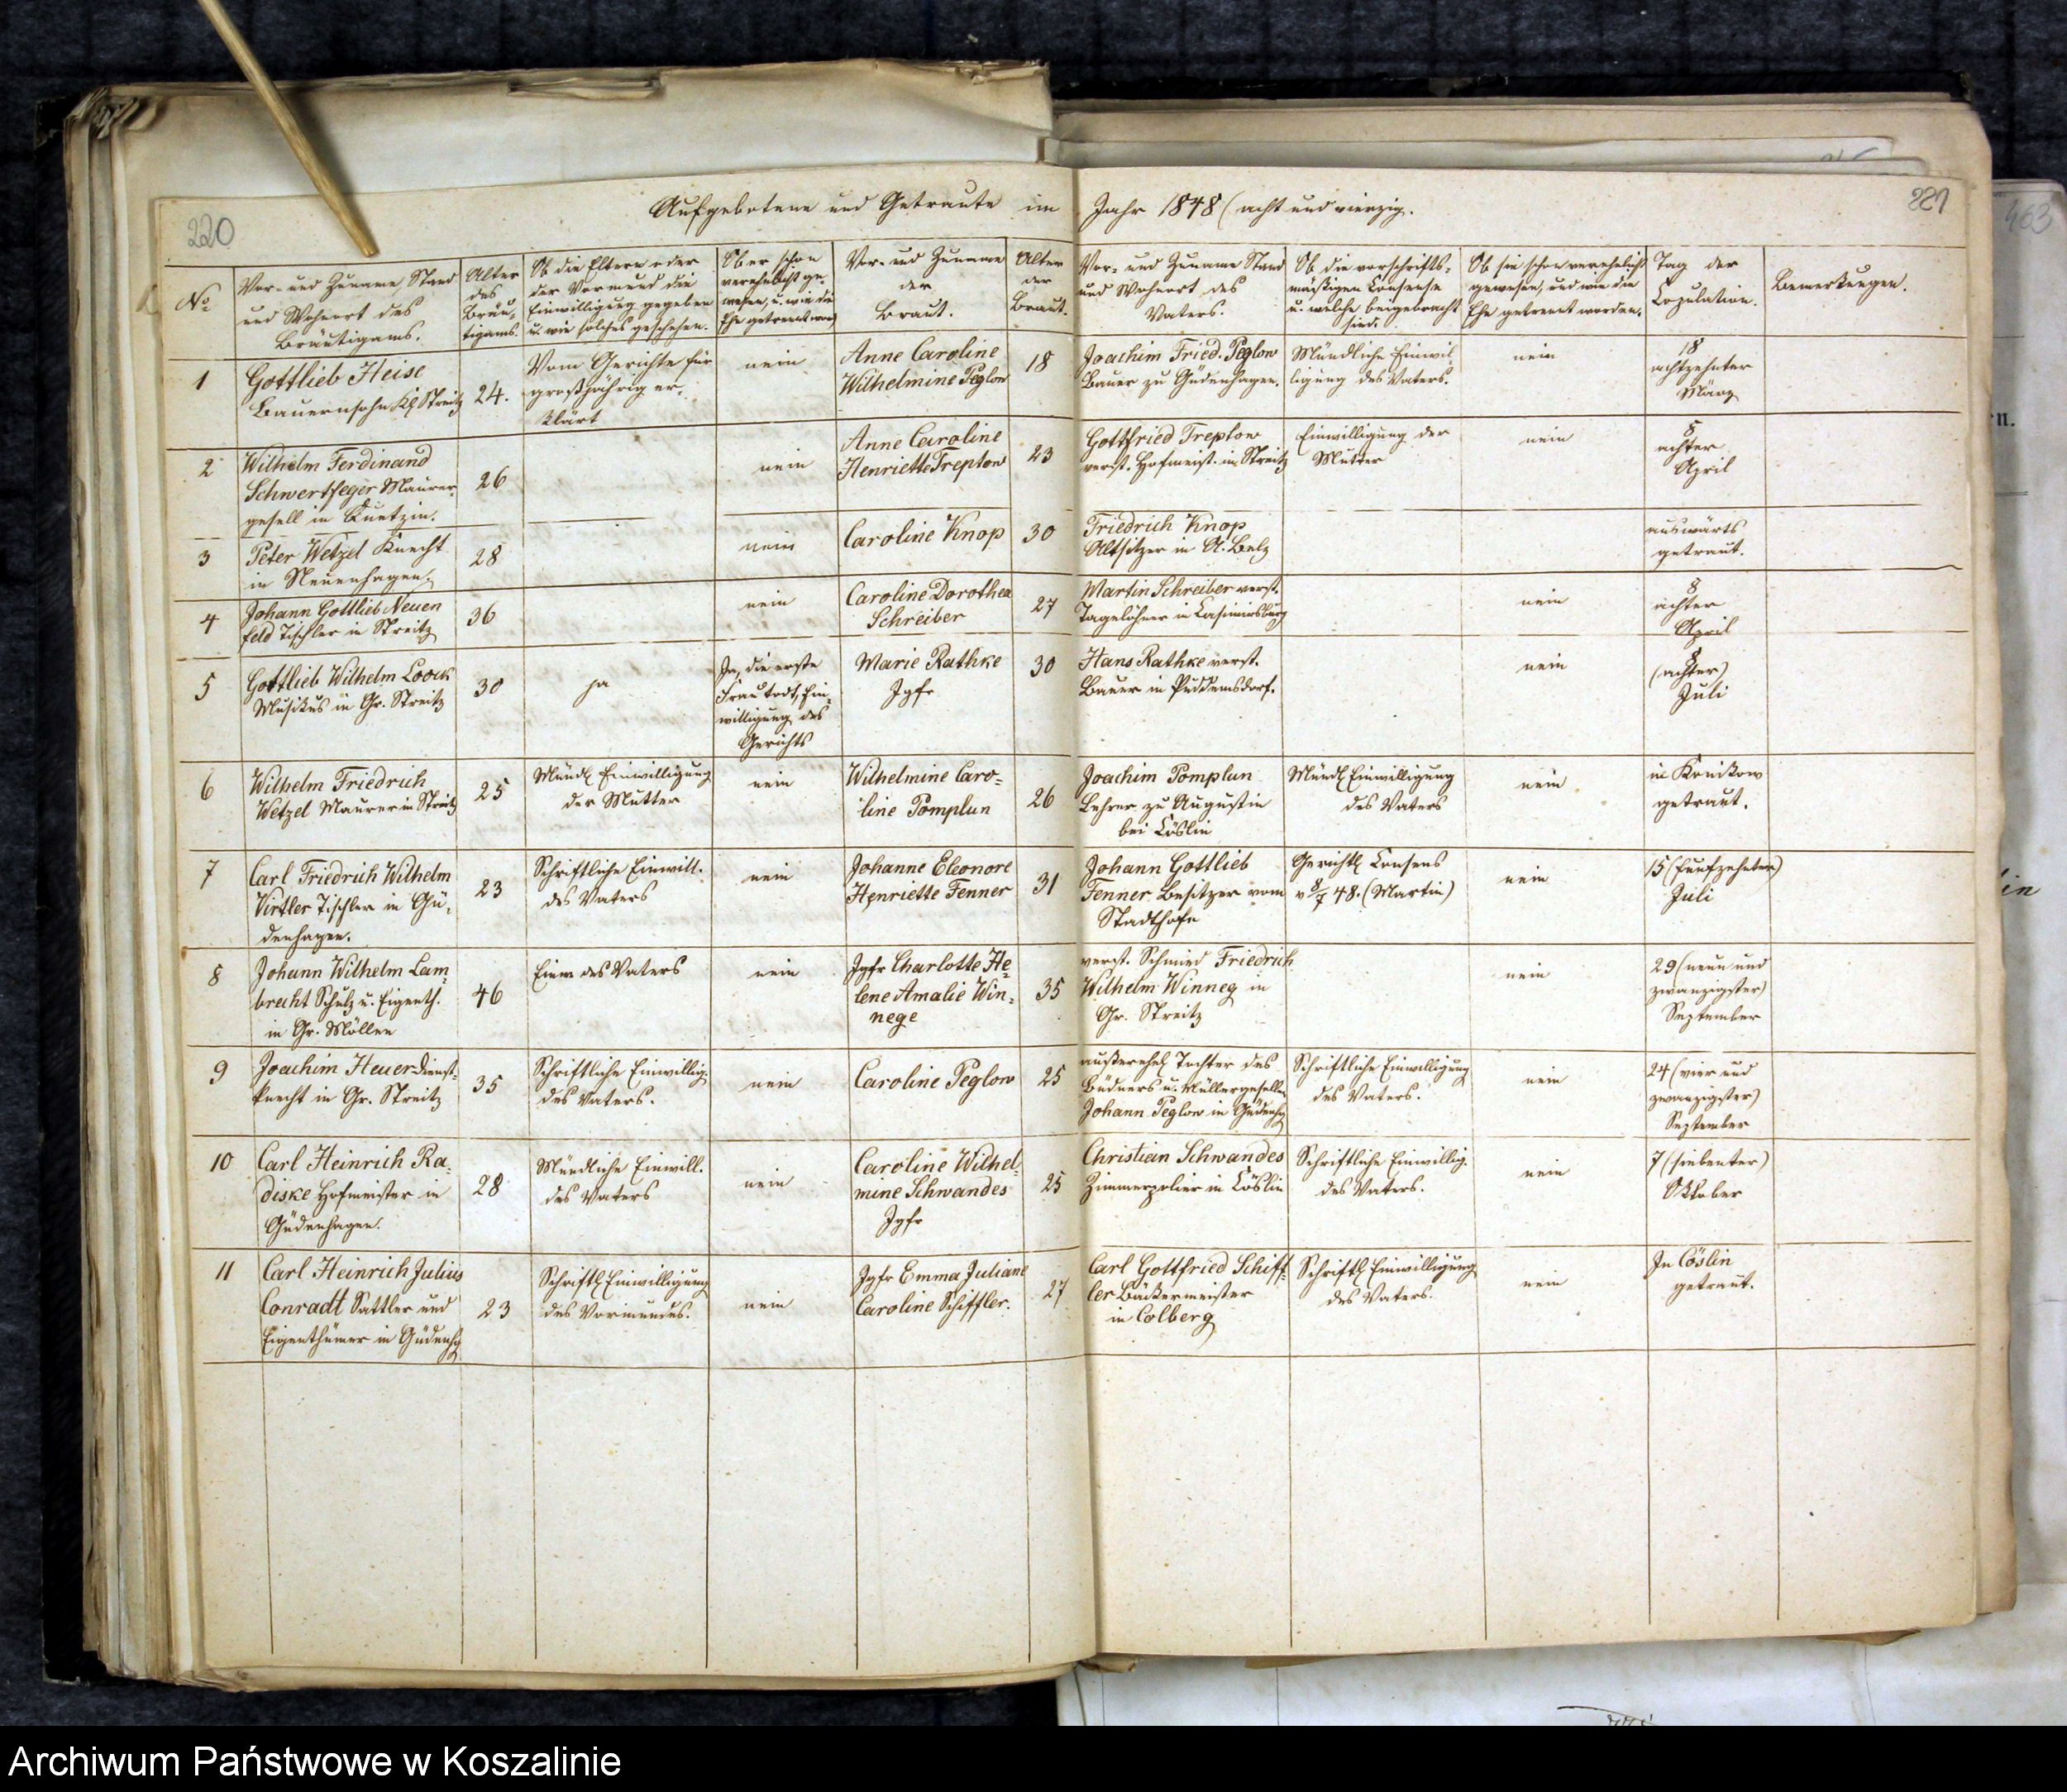 220
Aufgebotene und Getraute im Jahr 1848 (acht und vierzig.
221
463
No
Vor- und Zuname, Stand
und Wohnort des
Bräutigams.
Alter
des
Bräu-
tigams.
Ob die Eltern oder
der Vormund die
Einwilligung gegeben
u. wie solches geschehen.
Ob er schon
verehelicht ge-
wesen, u. wie die
Ehe getrennt word.
Vor- und Zuname
der
Braut.
Alter
der
Braut.
Vor- und Zuname Stand
und Wohnort des
Vaters.
Ob die vorschrifts-
mäßigen Consense
u. welche beigebracht
sind.
Ob sie schon verehelicht
gewesen, und wie die
Ehe getrennt worden.
Tag der
Copulation.
Bemerkungen.
1
Gottlieb Heise
Bauernsohn Kl Streitz
24.
Vom Gerichte für
großjährig er-
klärt
nein
Anne Caroline
Wilhelmine Peglow
18
Joachim Fried. Peglow
Bauer zu Güdenhagen.
Mündliche Einwil-
ligung des Vaters.
nein
18
achtzehnter
März
2
Wilhelm Ferdinand
Schwertfeger Maurer-
gesell in Kuetzin.
26
nein
Anne Caroline
Henriette Treptow
23
Gottfried Treptow
verst. Hofmeist. in Streitz
Einwilligung der
Mutter
nein
8
achter
April
3
Peter Wetzel Knecht
in Neuenhagen.
28
nein
Caroline Knop
30
Friedrich Knop
Altsitzer in A. Belz
auswärts
getraut.
4
Johann Gottlieb Neuen
feld Tischler in Streitz
36
nein
Caroline Dorothea
Schreiber
27
Martin Schreiber verst.
Tagelöhner in Casimirsburg
nein
8
achter
April
5
Gottlieb Wilhelm Loock
Musikus in Gr. Streitz
30
ja
Ja, die erste
Frau todt, Ein-
willigung des
Gerichts
Marie Rathke
Jgfr
30
Hans Rathke verst.
Bauer in Puddemsdorf.
nein
8
(achter)
Juli
6
Wilhelm Friedrich
Wetzel Maurer in Streitz
25
Mündl Einwilligung
der Mutter
nein
Wilhelmine Caro-
line Pomplun
26
Joachim Pomplun
Lehrer zu Augustin
bei Cöslin
Mündl Einwilligung
des Vaters
nein
in Konikow
getraut.
7
Carl Friedrich Wilhelm
Virtler Tischler in Gü-
denhagen.
23
Schriftliche Einwill.
des Vaters
nein
Johanne Eleonore
Henriette Fenner
31
Johann Gottlieb
Fenner Besitzer vom
Stadthofe
Gerichtl Consens
v 8/7 48. (Martin)
nein
15 (fünfzehnter)
Juli
8
Johann Wilhelm Lam-
brecht Schulz u. Eigenth.
in Gr. Möllen
46
Einw des Vaters
nein
Jgfr Charlotte He-
lene Amalie Win-
nege
35
verst. Schmied Friedrich
Wilhelm Winneg in
Gr. Streitz
nein
29 (neun und
zwanzigster)
September
9
Joachim Heuer Dienst-
knecht in Gr. Streitz
35
Schriftliche Einwillig.
des Vaters.
nein
Caroline Peglow
25
außerehel Tochter des
Büdners u. Müllergesellen
Johann Peglow in Güdenhg
Schriftliche Einwilligung
des Vaters.
nein
24 (vier und
zwanzigster)
September
10
Carl Heinrich Ra-
diske Hofmeister in
Güdenhagen.
28
Mündliche Einwill.
des Vaters
nein
Caroline Wilhel-
mine Schwandes
Jgfr
25
Christian Schwandes
Zimmerpolier in Cöslin
Schriftliche Einwillig.
des Vaters.
nein
7 (siebenter)
Oktober
11
Carl Heinrich Julius
Conradt Sattler und
Eigenthümer in Güdenhg
23
Schriftl Einwilligung
des Vormundes.
nein
Jgfr Emma Juliane
Caroline Schiffler.
27
Carl Gottfried Schiff-
ler Bäckermeister
in Colberg
Schriftl Einwilligung
des Vaters.
nein
In Cöslin
getraut.
Archiwum Państwowe w Koszalinie